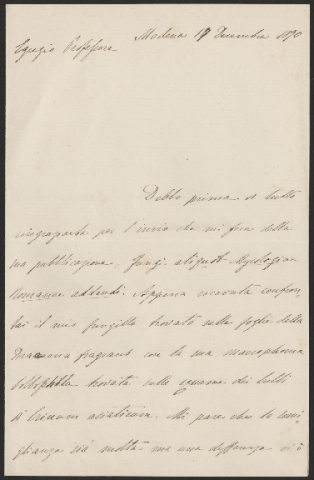 Modena 17 Dicembre 1890
Egregio Professore
Debbo prima di tutto
ringraziarla per l'invio che mi fece della
sua pubblicazione, Fungi aliquot Mycologiae
Romanae addendi. Appena ricevuta confron-
tai il mio funghillo trovato sulle foglie della
Dracaena fragrans con la sua Macrophoma
trovata sulle squame dei bulbi
di Crinum asiaticum. Mi pare che la somi-
glianza sia molta ma una differenza vi è